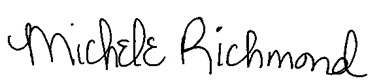 Michele Richmond